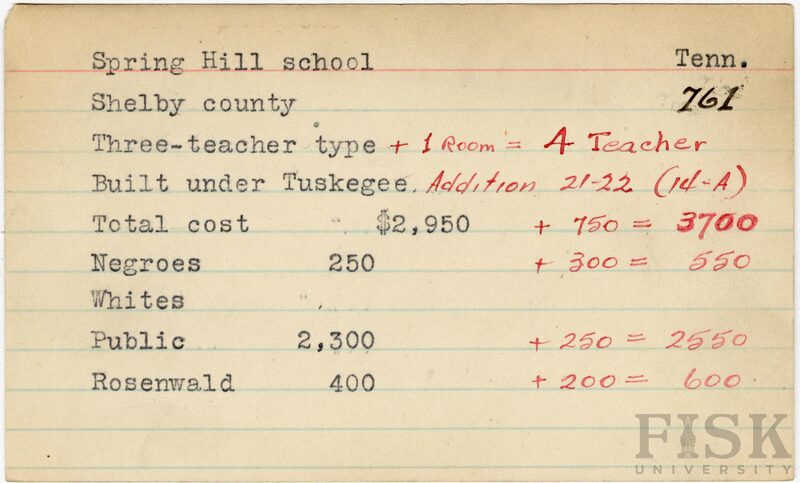 Spring Hill school Tenn.
Shelby county 761
Three-teacher type + 1 Room = 4 Teacher
Built under Tuskegee. Addition 21-22 (14-A)
Total cost $2,950 + 750 = 3700
Negroes 250 + 300 = 550
Whites
Public 2,300 + 250 = 2550
Rosenwald 400 + 200 = 600
FISK
UNIVERSITY